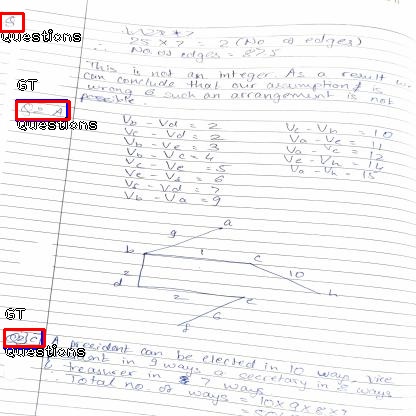 Questions
25 x 7 = 2 (No. of edges)
∴ No. of edges = 87.5
This is not an integer. As a result we
can conclude that our assumption is
wrong & such an arrangement is not
possible.
GT
Questions
Vb - Vd = 2
Vc - Vd = 2
Vb - Ve = 3
Vb - Vc = 4
Vc - Ve = 5
Ve - Vf = 6
Vf - Vd = 7
Vb - Va = 9
Vc - Vh = 10
Va - Ve = 11
Va - Vc = 12
Ve - Vh = 14
Va - Vh = 15
a
9
b
1
c
2
10
d
2
e
h
6
f
GT
Questions
A president can be elected in 10 ways, vice
president in 9 ways a secretary in 8 ways
& treasurer in 7 ways
∴ Total no of ways = 10 x 9 x 8 x 7